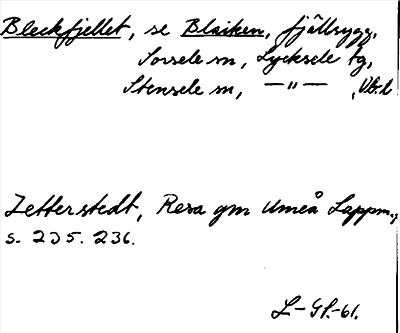 Bleckfjellet, se Blaiken, fjällrygg,
Sorsele sn, Lycksele tg,
Stensele sn, —"— , Vb.l
Zetterstedt, Resa gm Umeå Lappm.,
s. 235. 236.
L-Gf.-61.